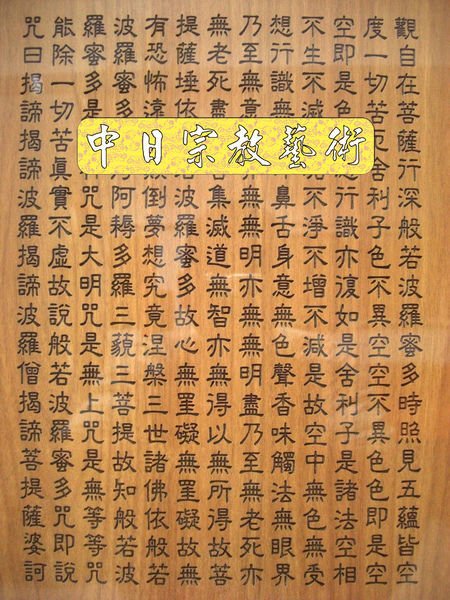 中日宗教藝術
觀自在菩薩行深般若波羅蜜多時照見五蘊皆空
度一切苦厄舍利子色不異空空不異色色即是空
空即是色行識亦復如是舍利子是諸法空相
不生不滅不淨不增不減是故空中無色無受
想行識無鼻舌身意無色聲香味觸法無眼界
乃至無意無無明亦無無明盡乃至無老死亦
無老死盡集滅道無智亦無得以無所得故菩
提薩埵依若波羅蜜多故心無罣礙無罣礙故無
有恐怖遠顛倒夢想究竟涅槃三世諸佛依般若
波羅蜜多阿耨多羅三藐三菩提故知般若波
羅蜜多是咒是大明咒是無上咒是無等等咒
能除一切苦眞實不虛故說般若波羅蜜多咒即說
咒曰揭諦揭諦波羅揭諦波羅僧揭諦菩提薩婆訶